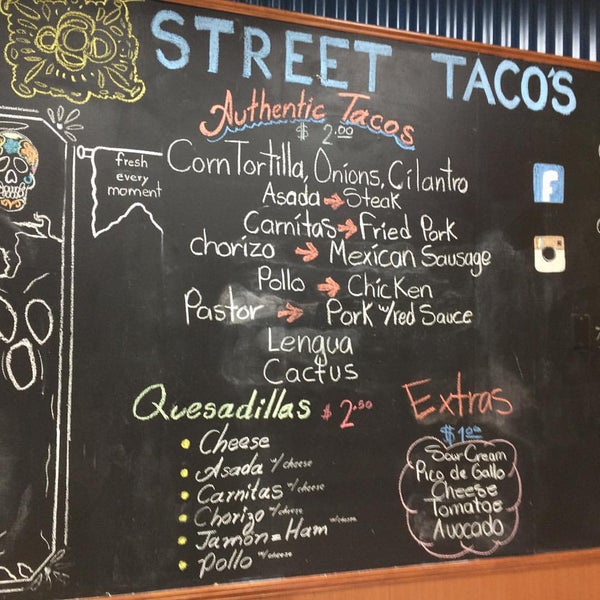 STREET TACO'S
Authentic Tacos
$ 2.00
fresh
every
moment
Corn Tortilla, Onions, Cilantro
Asada → Steak
Carnitas → Fried Pork
chorizo → Mexican Sausage
Pollo → Chicken
Pastor → Pork w/red Sauce
Lengua
Cactus
Quesadillas $ 2.50
Cheese
Asada w/cheese
Carnitas w/cheese
Chorizo w/cheese
Jamón = Ham w/cheese
Pollo w/cheese
Extras
$1.00
Sour Cream
Pico de Gallo
Cheese
Tomatoe
Avocado
f